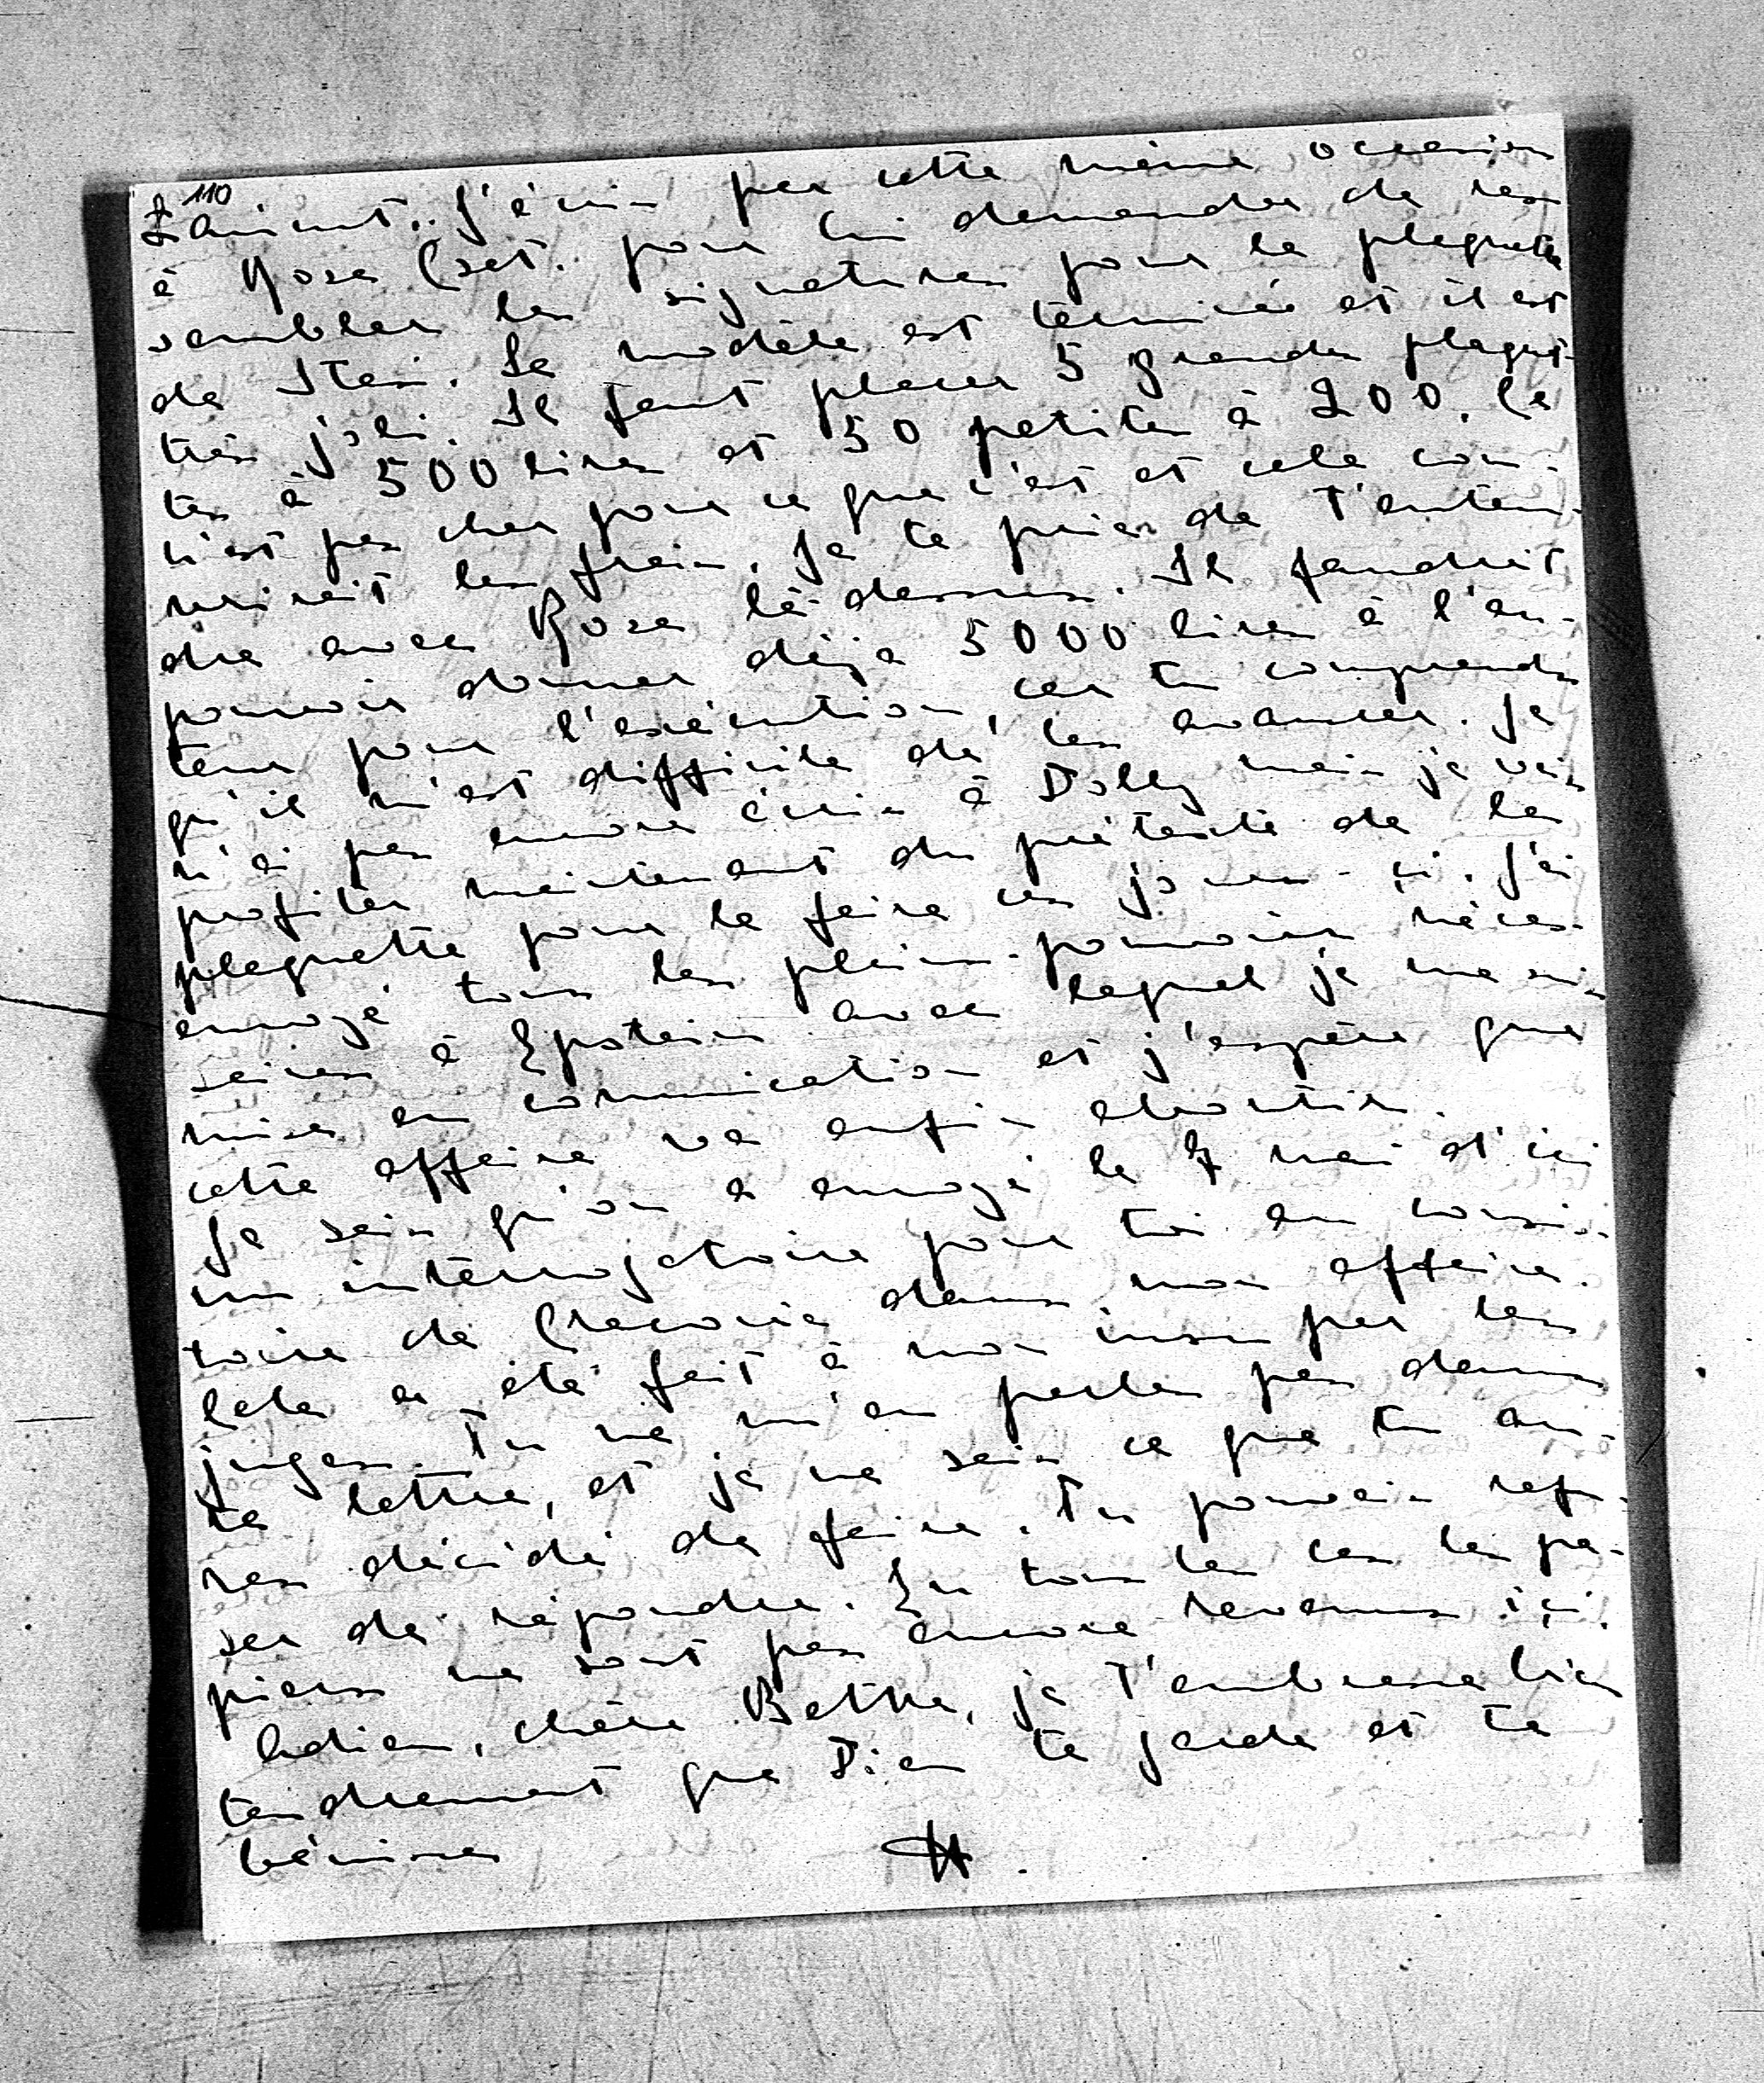 110
Zaniut.. J'écris par cette même occasion
à Rosa Cset. pour lui demander de ras
sembler les signatures pour la plaquette
de Stas. Le modèle est terminé et il est
très joli. Il faut placer 5 grandes plaquet-
tes à 500 lires et 50 petites à 200. Ce
n'est pas cher pour ce que c'est et cela cou-
vrirait les frais. Je te prie de t'enten-
dre avec Rosa là-dessus. Il faudrait
pouvoir donner déjà 5000 lires à l'au-
teur pour l'exécution, car tu comprends
qu'il m'est difficile de les avancer. Je
n'ai pas encore écris à Dolly mais je vais
profiter maintenant du prétexte de la
plaquette pour le faire ces jours-ci. J'ai
envoyé tous les pleins-pouvoirs néces-
saires à Epstein avec lequel je me suis
mise en comunication et j'espère que
cette affaire va enfin aboutir.
Je sais qu'on a envoyé le 7 mai d'ici
un interrogatoire pour toi au consis-
toire de Cracovie dans mon affaire.
Cela a été fait à mon insu par les
juges. Tu ne m'en parles pas dans
ta lettre, et je ne sais ce que tu au-
ras décidé de faire. Tu pouvais refu-
ser de répondre. En tous les cas les pa-
piers ne sont pas encore revenus içi.
Adieu, chère Betka, je t'embrasse bien
tendrement que Dieu te garde et te
bénisse